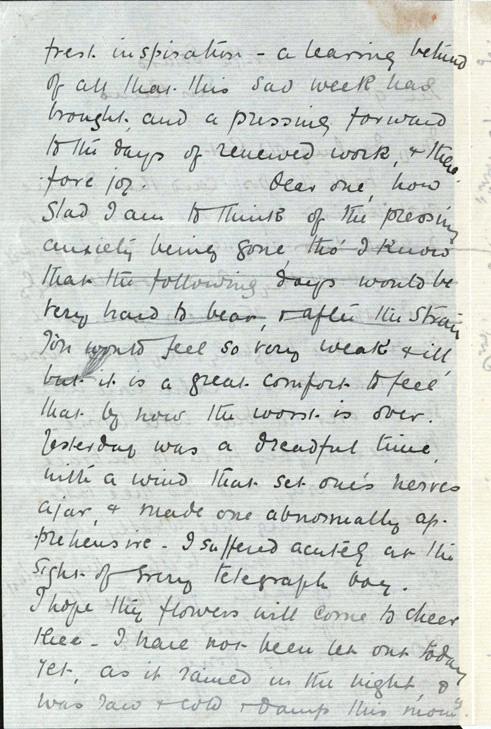 trest inspiration - a leaving behind
of all that this sad week has
brought, and a pressing forward
to the days of renewed work, & there
fore joy. Dear one, how
glad I am to think of the pressing
anxiety being gone, tho' I know
that the following days would be
very hard to bear, & after the strain
you would feel so very weak & ill,
but it is a great comfort to feel
that by now the worst is over.
Yesterday was a dreadful time,
with a wind that set one's nerves
ajar, & made one abnormally ap-
prehensive - I suffered acutely at the
sight of every telegraph boy.
I hope the flowers will come to cheer
thee - I have not been let out today
yet, as it rained in the night, &
was raw & cold & damp this morng.